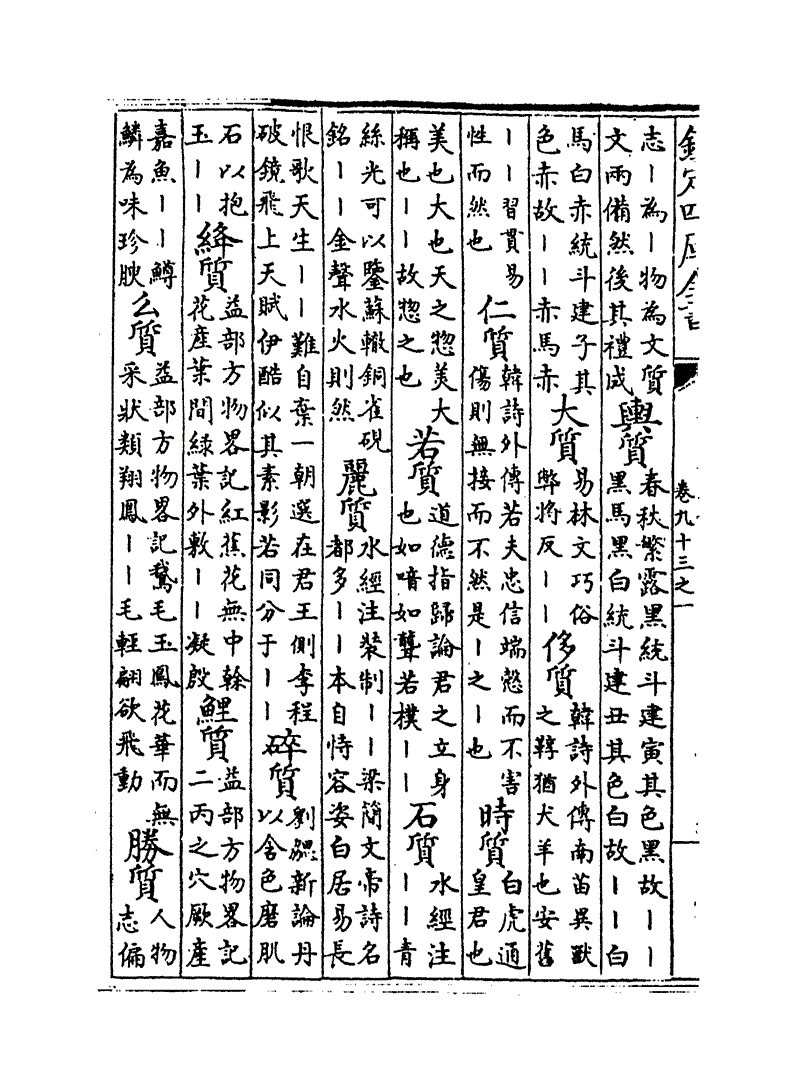 欽定四庫全書
卷九十三之一
志丨為丨物為文質
文兩備然後其禮成
輿質
春秋繁露黑統斗建寅其色黑故丨丨
黑馬黑白統斗建丑其色白故丨丨白
馬白赤統斗建子其
色赤故丨丨赤馬赤
大質
易林文巧俗
弊將反丨丨
侈質
韓詩外傳南苗異獸
之鞟猶犬羊也安舊
丨丨習貫易
性而然也
仁質
韓詩外傳若夫忠信端慤而不害
傷則無接而不然是丨之丨也
時質
白虎通
皇君也
美也大也天之惣美大
稱也丨丨故惣之也
若質
道德指歸論君之立身
也如喑如聾若樸丨丨
石質
水經注
丨丨青
絲光可以鑒蘇轍銅雀硯
銘丨丨金聲水火則然
麗質
水經注裝制丨丨梁簡文帝詩名
都多丨丨本自恃容姿白居易長
恨歌天生丨丨難自棄一朝選在君王側李程
破鏡飛上天賦伊酷似其素影若同分于丨丨
碎質
劉勰新論丹
以含色磨肌
石以抱
玉丨丨
絳質
益部方物畧記紅蕉花無中榦
花産葉間緑葉外敷丨丨凝殷
鯉質
益部方物畧記
二丙之穴厥産
嘉魚丨丨鱒
鱗為味珍腴
么質
益部方物畧記鵞毛玉鳳花華而無
采狀類翔鳳丨丨毛輕翩欲飛動
勝質
人物
志偏